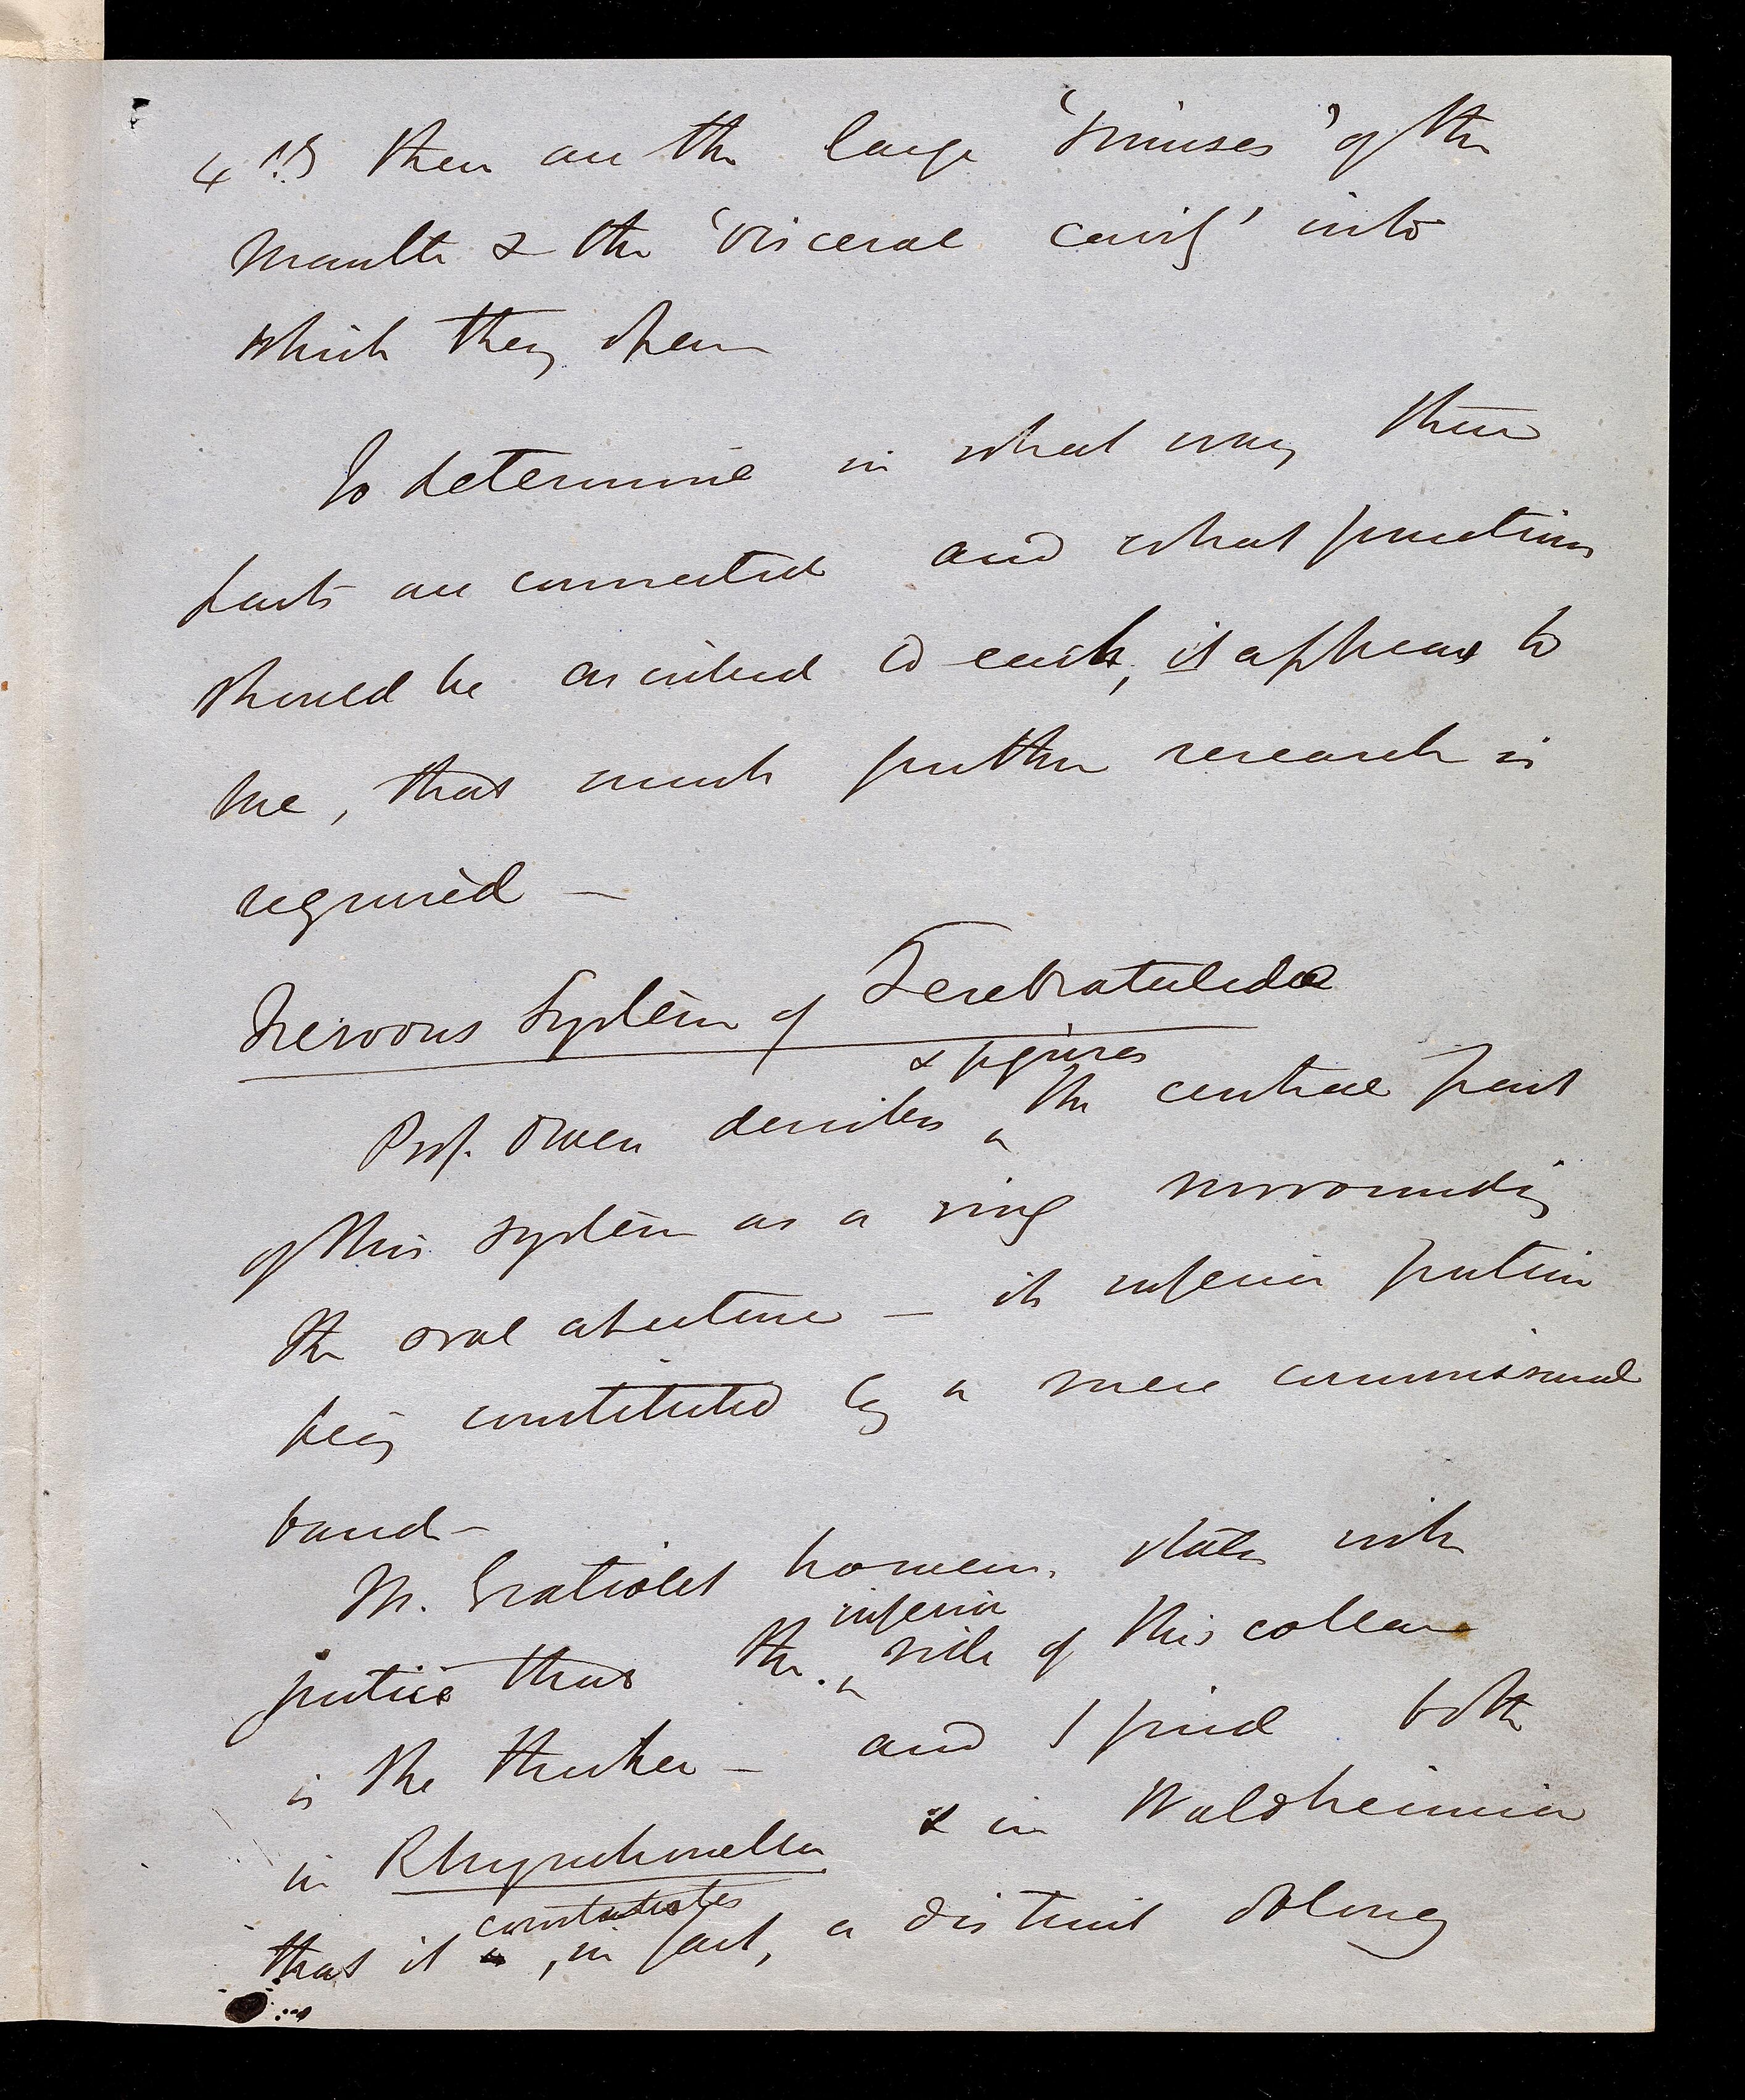 4thly there are the large 'sinuses' of the
mantle & the 'visceral cavity' into
which they open
To determine in what way these
parts are connected and what functions
should be ascribed to each, it appears to
me, that much further research is
required —
Nervous System of Terebratulidae
Prof. Owen describes & figures the central part
of this system as a ring surrounding
the oral aperture — its inferior portion
being constituted by a mere commissural
band —
M. Gratiolet however, states with
justice that the inferior side of this collar
is the thicker — and I find both
in Rhynchonella & in Waldheimia
that it constitutes, in fact, a distinct oblong